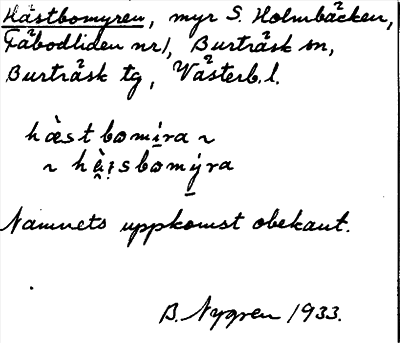 Hästbomyren, myr S. Holmbäcken,
Fäbodliden nr 1, Burträsk sn,
Burträsk tg, Västerb. l.
hæ̀st bomíra ~
~ hæ̀ı̣sbomýra
Namnets uppkomst obekant.
B. Nygren 1933.